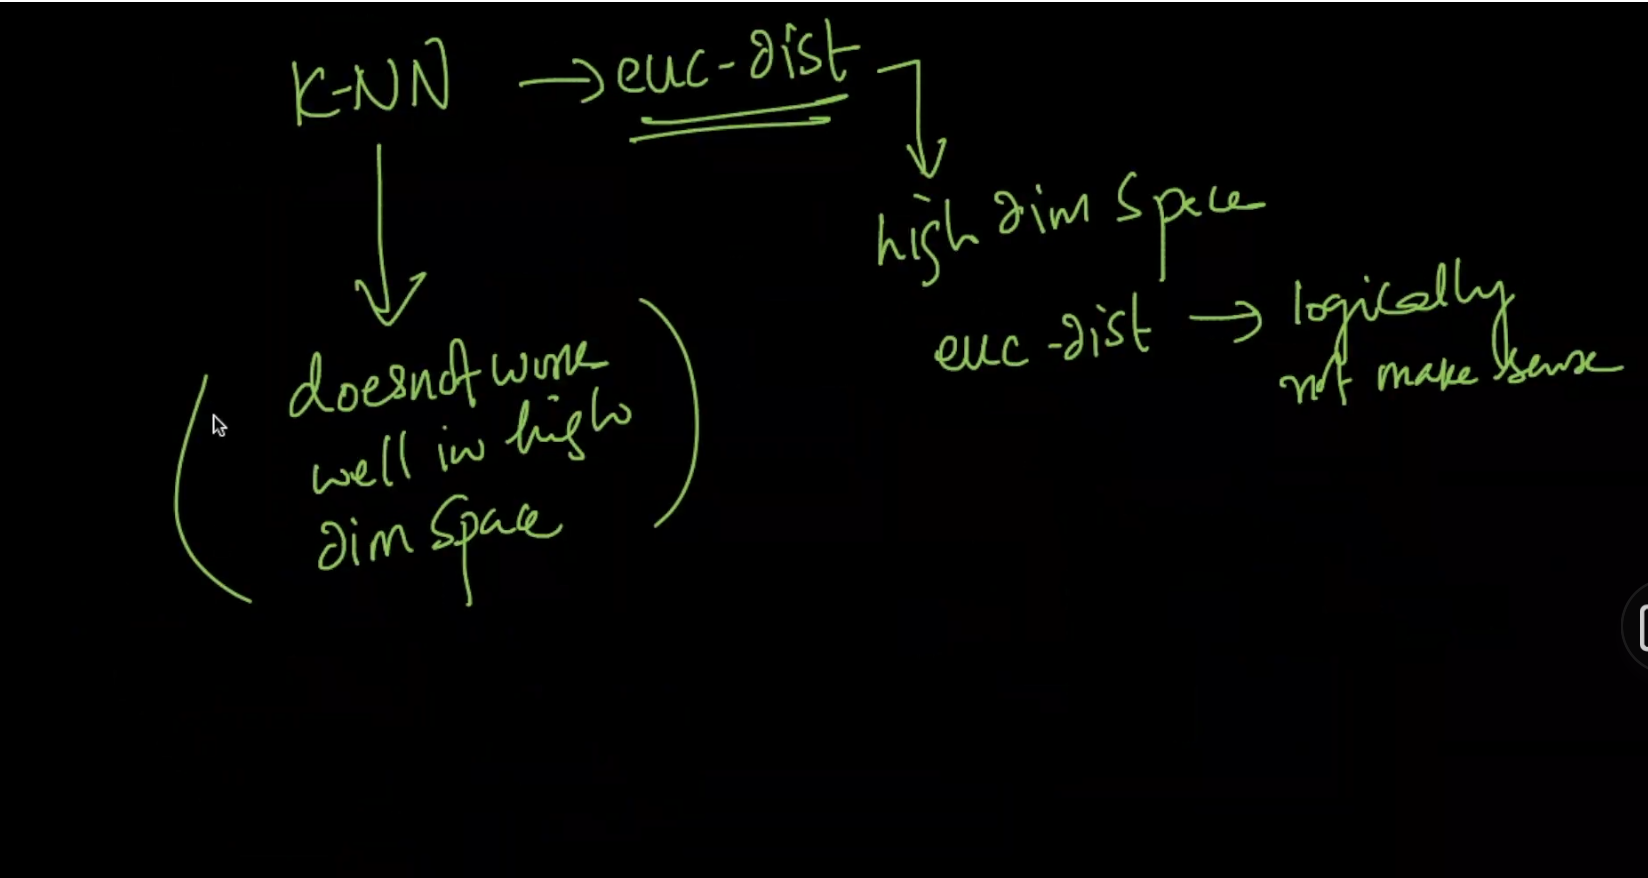 K-NN → euc-dist
high dim space
euc-dist → logically
not make sense
doesnot work
well in high
dim space